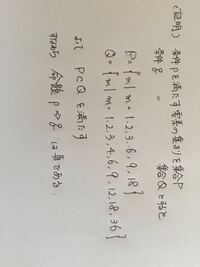 (証明) 条件pを満たす要素の集まりを集合P
条件q 〃 集合Qとすると
P={m|m=1.2.3.6.9.18}
Q={m|m=1.2.3.4.6.9.12.18.36}
よって P⊂Q を満たす
すなわち 命題 p→q は真である.